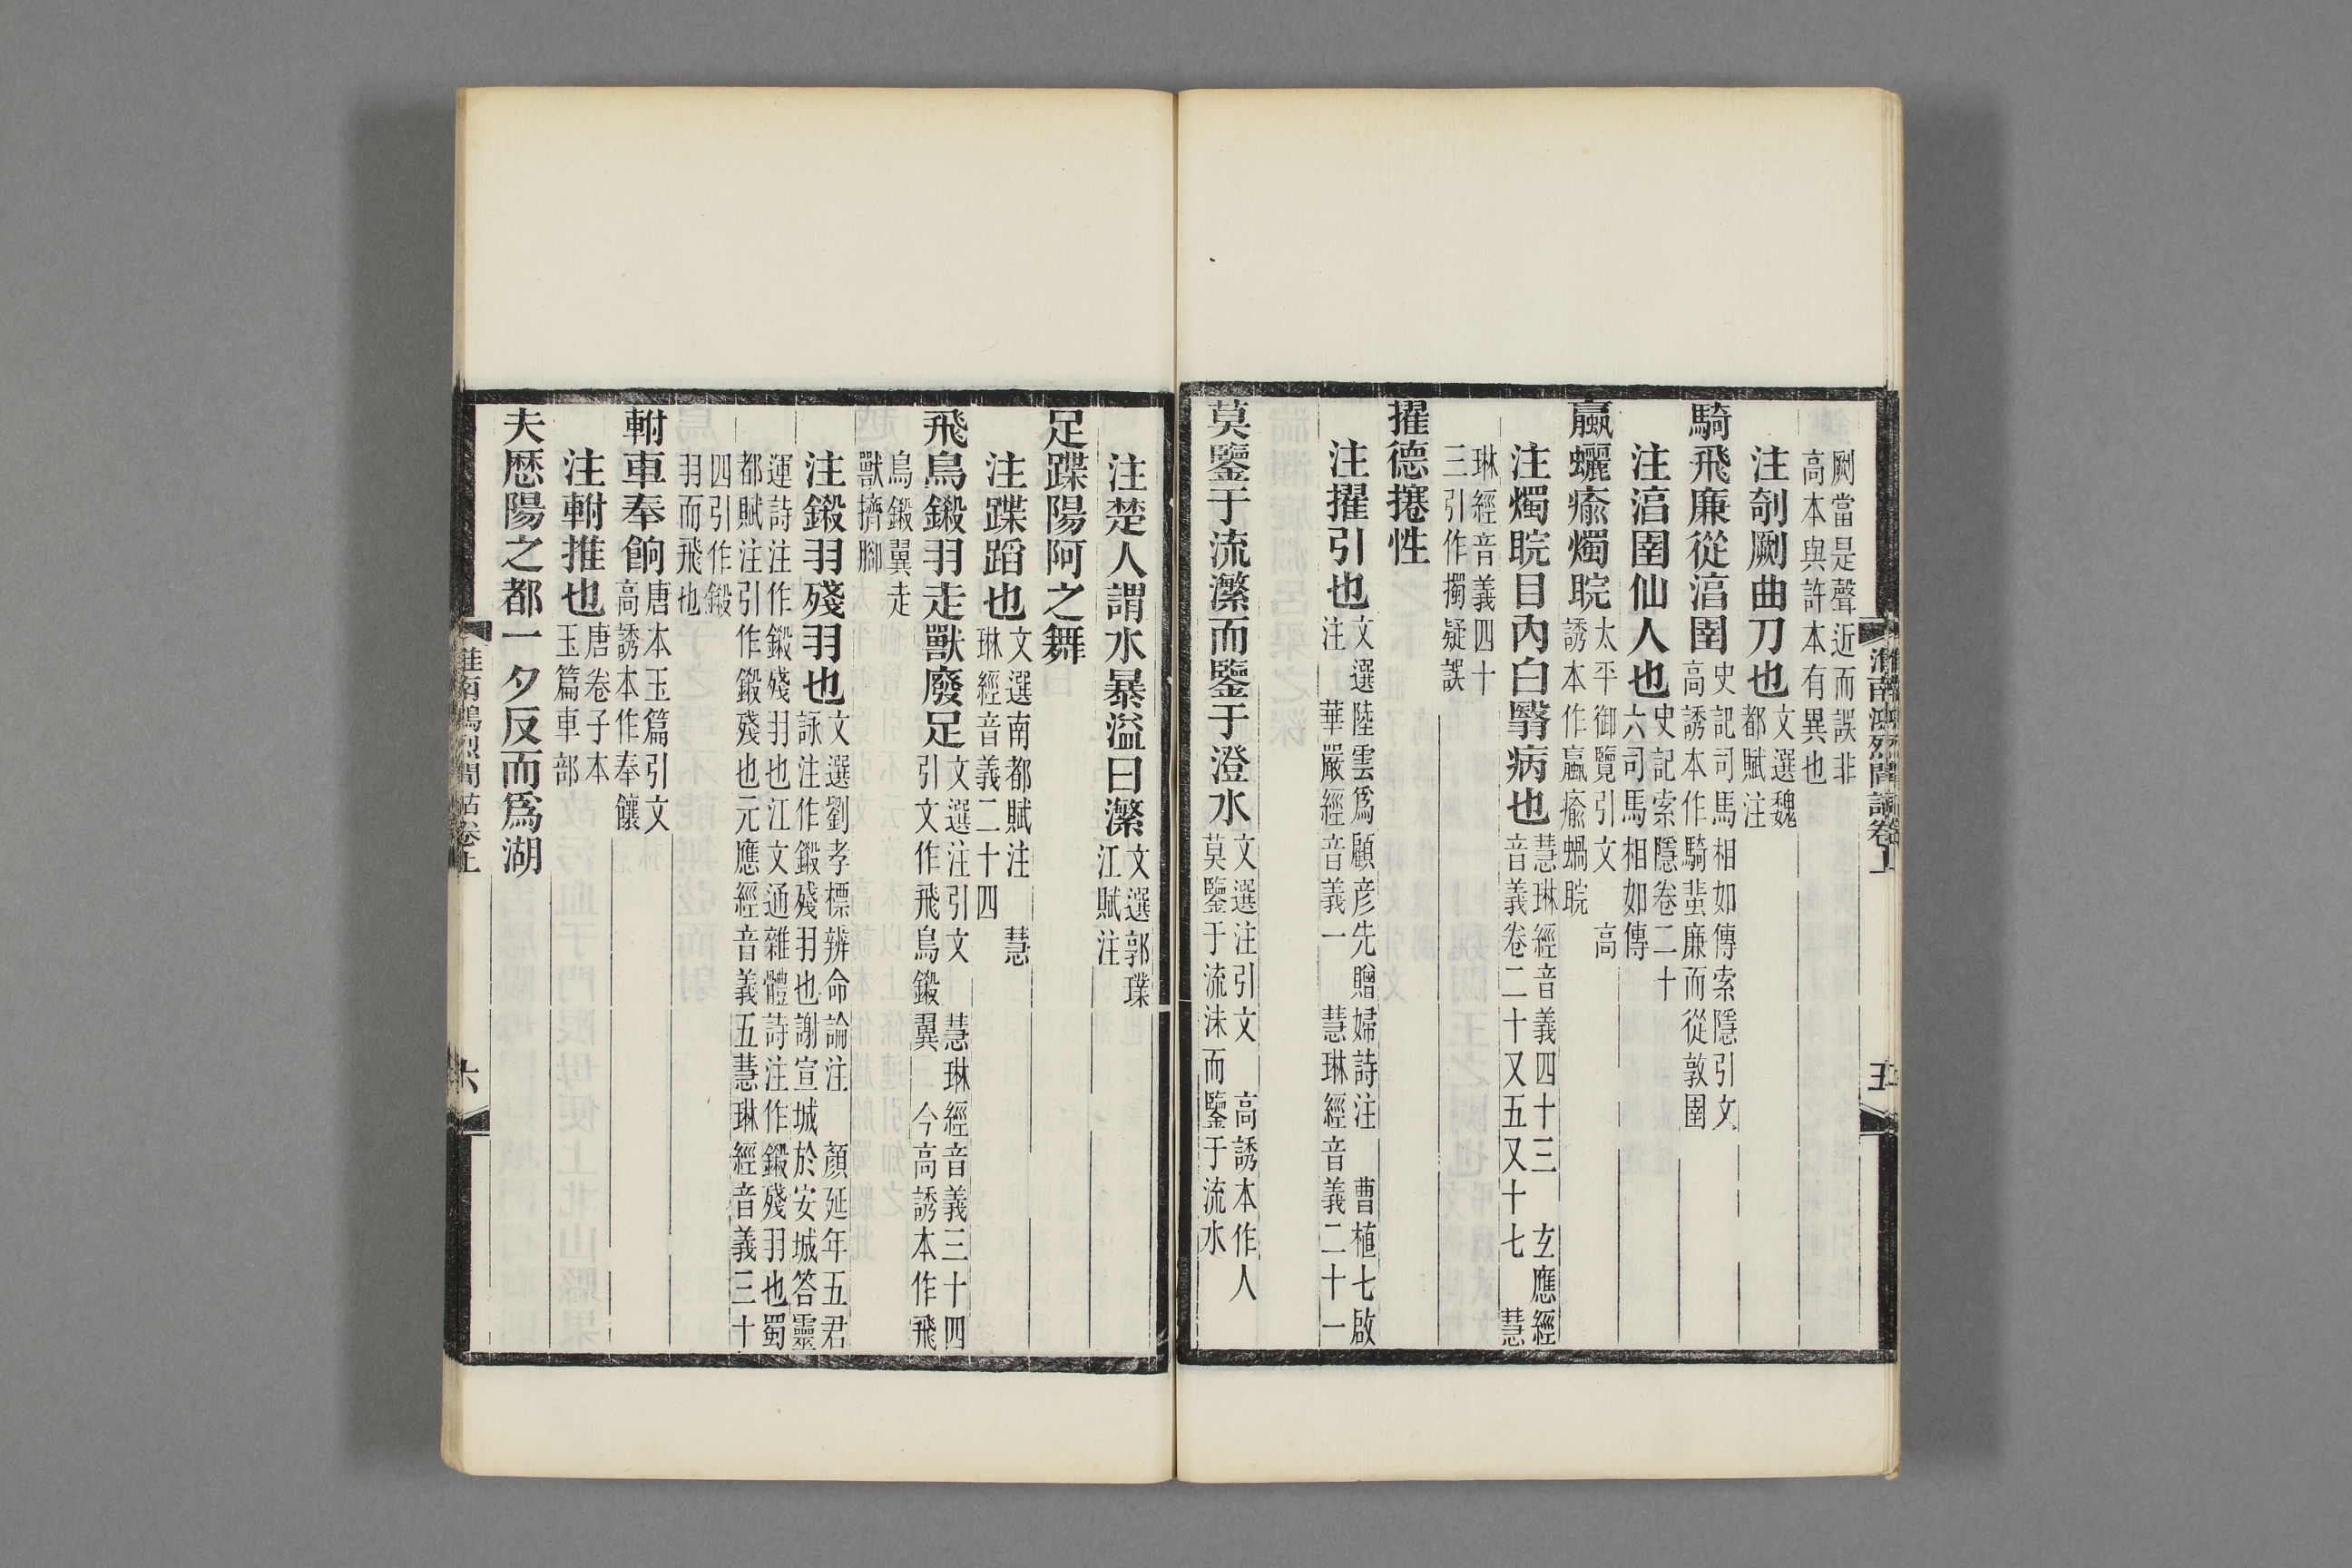 淮南鴻烈閒詁卷上
五
劂當是聲近而誤非
高本與許本有異也
注剞劂曲刀也文選魏
都賦注
騎飛廉從涫圉史記司馬相如傳索隱引文
高誘本作騎蜚廉而從敦圉
注涫圉仙人也史記索隱卷二十
六司馬相如傳
蠃蠬瘉燭睆太平御覽引文　高
誘本作蠃瘉蝸睆
注燭睆目內白翳病也慧琳經音義四十三　玄應經
音義卷二十又五又十七　慧
琳經音義四十
三引作擉疑誤
擢德捲性
注擢引也文選陸雲爲顧彥先贈婦詩注　曹植七啟
注　華嚴經音義一　慧琳經音義二十一
莫鑒于流瀿而鑒于澄水文選注引文　高誘本作人
莫鑒于流沬而鑒于流水
注楚人謂水暴溢曰瀿文選郭璞
江賦注
足蹀陽阿之舞
注蹀蹈也文選南都賦注　慧
琳經音義二十四
飛鳥鎩羽走獸廢足文選注引文　慧琳經音義三十四
引文作飛鳥鎩翼　今高誘本作飛
鳥鎩翼走
獸擠腳
注鎩羽殘羽也文選劉孝標辨命論注　顏延年五君
詠注作鎩殘羽也謝宣城於安城答靈
運詩注作鎩殘羽也江文通雜體詩注作鎩殘羽也蜀
都賦注引作鎩殘也元應經音義五慧琳經音義三十
四引作鎩
羽而飛也
軵車奉餉唐本玉篇引文
高誘本作奉饟
注軵推也唐卷子本
玉篇車部
夫歷陽之都一夕反而爲湖
淮南鴻烈閒詁卷上
六